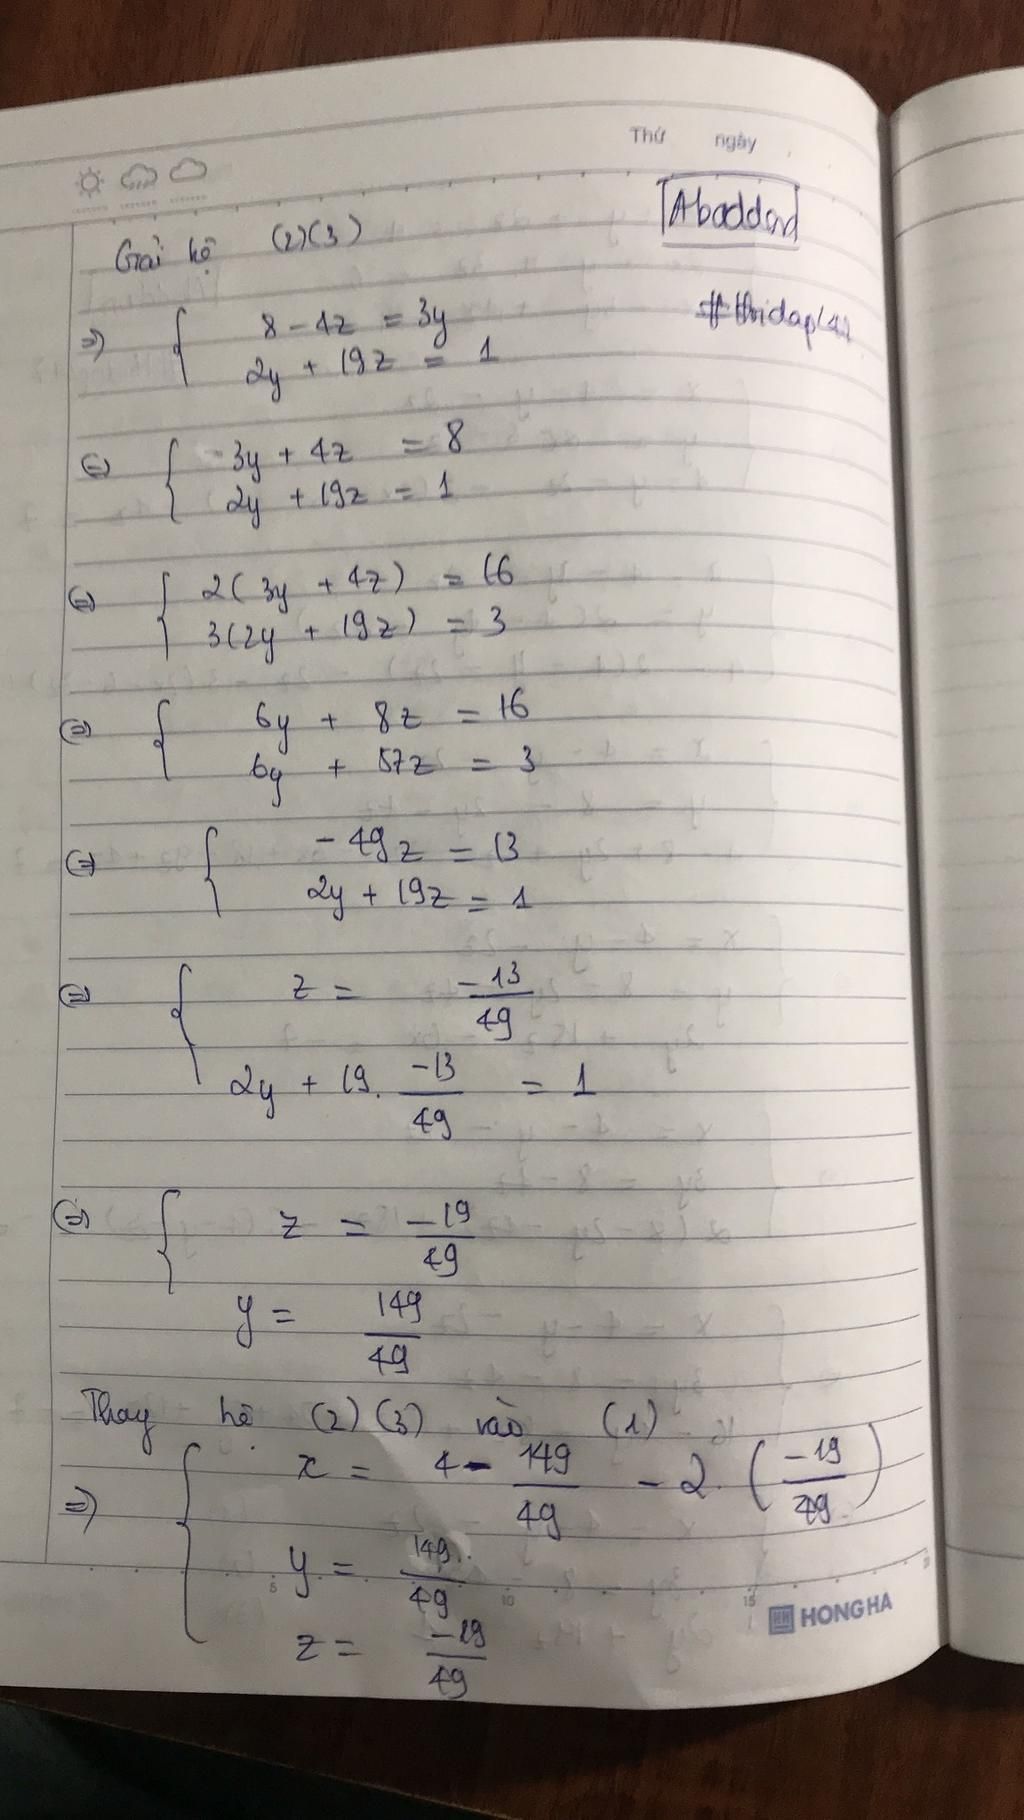 Thứ ngày
Abaddon
Giải hệ (2)(3)
=> { 8 - 4z = 3y
2y + 19z = 1
<=> { 3y + 4z = 8
2y + 19z = 1
<=> { 2(3y + 4z) = 16
3(2y + 19z) = 3
<=> { 6y + 8z = 16
6y + 57z = 3
<=> { -49z = 13
2y + 19z = 1
<=> { z = -13/49
2y + 19. -13/49 = 1
<=> { z = -19/49
y = 149/49
Thay hệ (2)(3) vào (1)
=> { x = 4 - 149/49 - 2. (-19/49)
y = 149/49
z = -19/49
5 10 15 20
HONG HA